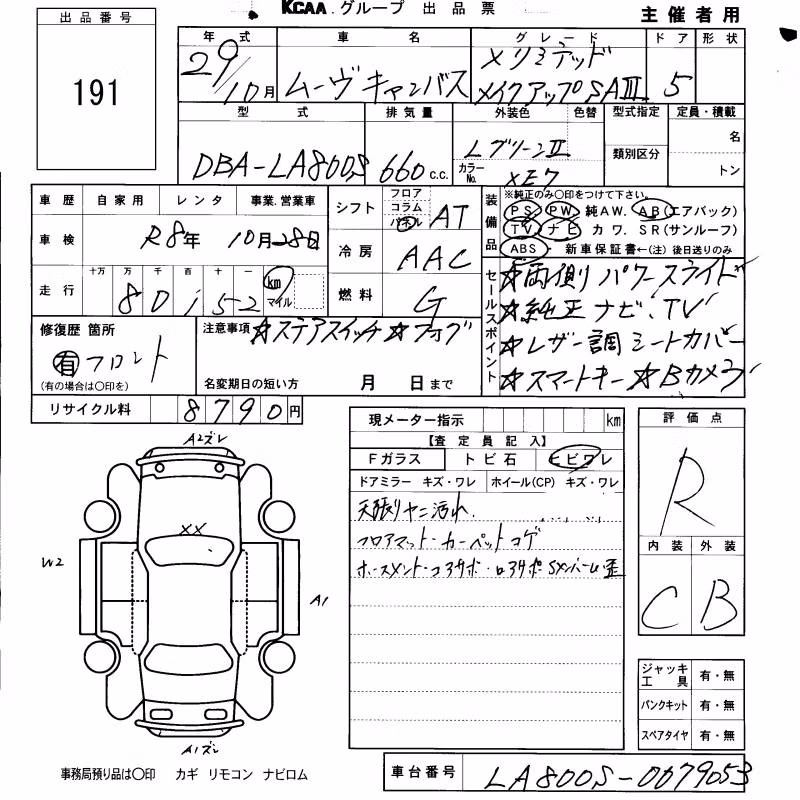 KCAA.グループ 出品票
主催者用
出品番号
191
年式 車名 グレード ドア 形状
29/10月 ムーヴキャンバス Xリミテッド
メイクアップSAⅢ 5
型式 排気量 外装色 色替 型式指定 定員・積載
DBA-LA800S 660 c.c. LグリーンⅡ
カラーNo. XE7
類別区分
名
トン
車歴 自家用 レンタ 事業.営業車
車検 R8年 10月28日
走行 十万 万 千 百 十 一
80152 km マイル
シフト フロア コラム パネル AT
冷房 AAC
燃料 G
装備品 ※純正のみ〇印をつけて下さい。
PS PW 純AW. AB(エアバック)
TV ナビ カワ. SR(サンルーフ)
ABS・ 新車保証書←(注) 後日送りのみ
セールスポイント
☆両側パワースライド
☆純正ナビ.TV
☆レザー調シートカバー
☆スマートキー☆Bカメラ
修復歴 箇所
有 フロント
(有の場合は〇印を)
注意事項 ☆ステアスイッチ☆フォグ
名変期日の短い方 月 日まで
リサイクル料 8790円
現メーター指示 km
【査定員記入】
Fガラス トビ石 ヒビワレ
ドアミラー キズ・ワレ ホイール(CP) キズ・ワレ
天張りヤニ汚れ
フロアマット・カーペットコゲ
評価点
R
内装 外装
C B
A2ズレ
XX
W2
A1
A1ズレ
ジャッキ工具 有・無
パンクキット 有・無
スペアタイヤ 有・無
事務局預り品は〇印 カギ リモコン ナビロム
車台番号 LA800S-0079053